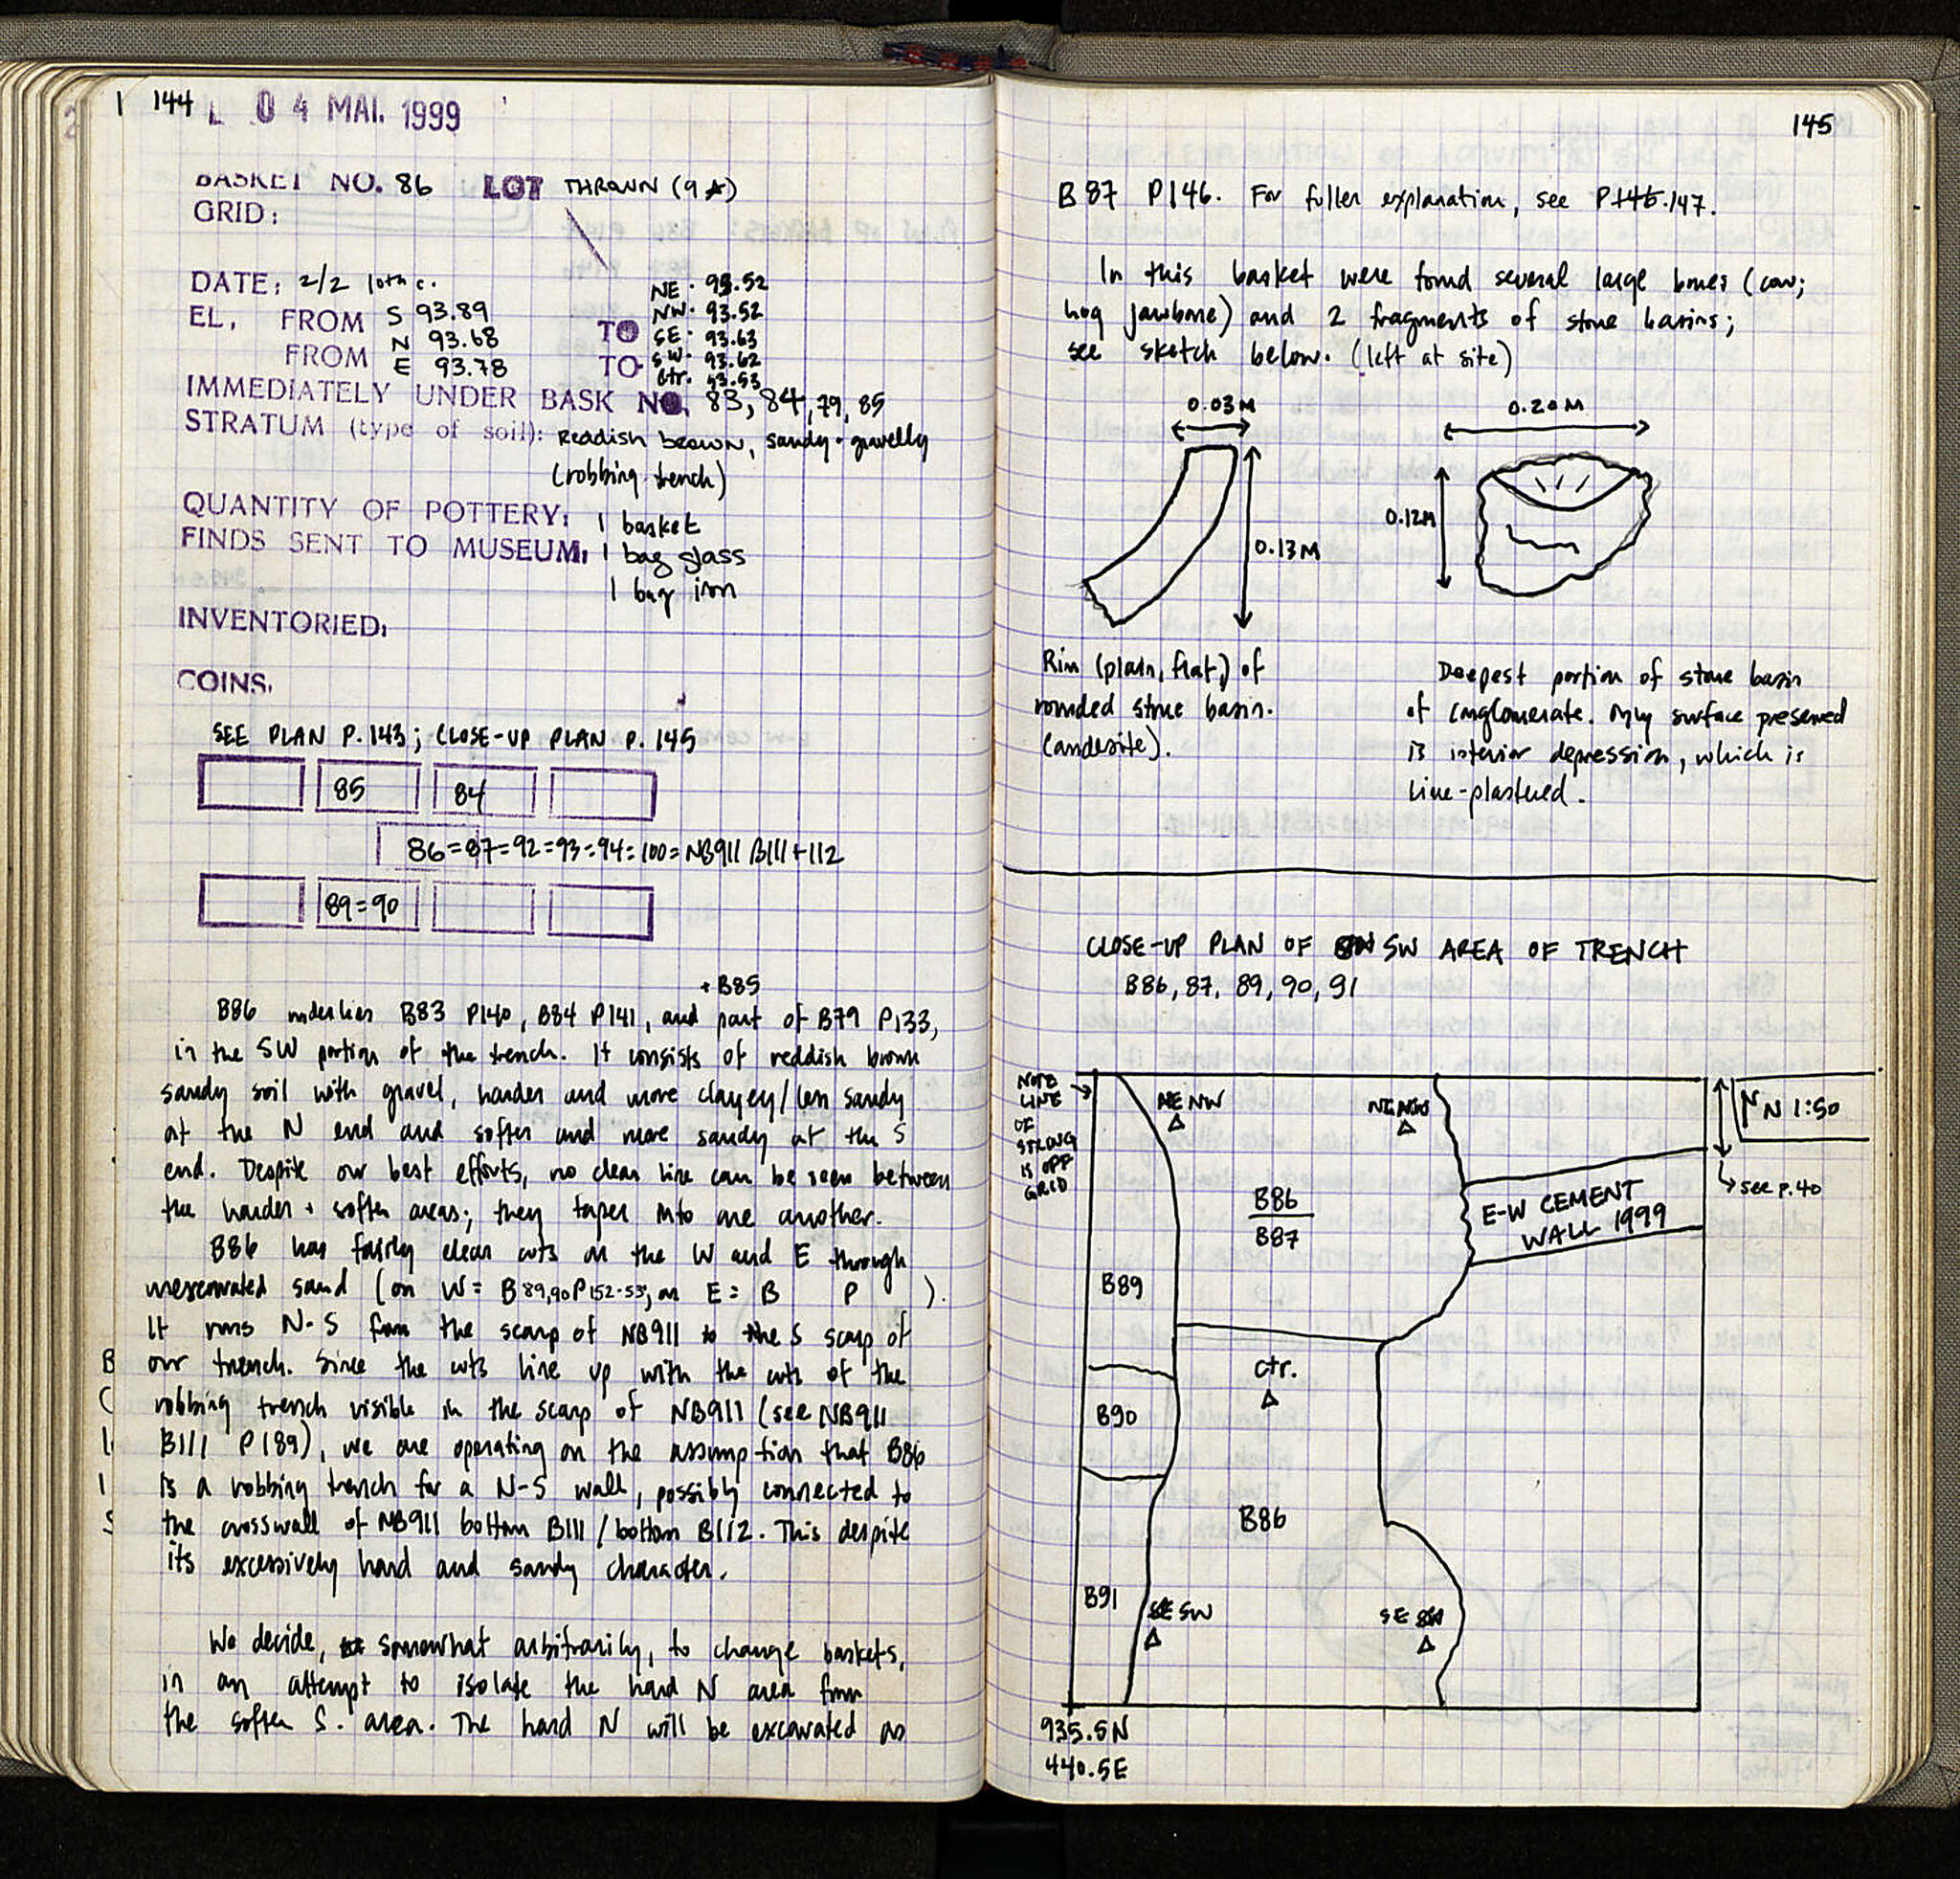 144 04 MAI. 1999
BASKET NO. 86 LOT THROWN (9 A)
GRID:
DATE: 2/2 10th c.
EL. FROM S 93.89
N 93.68
FROM E 93.78
NE. 93.52
TO NW. 93.52
SE. 93.63
TO SW. 93.62
Ctr. 93.53
IMMEDIATELY UNDER BASK NO. 83, 84, 79, 85
STRATUM (type of soil): Reddish brown, sandy + gravelly
(robbing trench)
QUANTITY OF POTTERY: 1 basket
FINDS SENT TO MUSEUM: 1 bag glass
1 bag iron
INVENTORIED:
COINS.
SEE PLAN P. 143; CLOSE-UP PLAN P. 145
85 84
86=87=92=93=94=100=NB911 B111+112
89=90
+ B85
B86 underlies B83 P140, B84 P141, and part of B79 P133,
in the SW portion of the trench. It consists of reddish brown
sandy soil with gravel, harder and more clayey/less sandy
at the N end and softer and more sandy at the S
end. Despite our best efforts, no clear line can be seen between
the harder + softer areas; they taper into one another.
B86 has fairly clear cuts on the W and E through
unexcavated sand (on W = B89,90 P152-53; on E = B P ).
It runs N-S from the scarp of NB911 to the S scarp of
our trench. Since the cuts line up with the cuts of the
robbing trench visible in the scarp of NB911 (see NB911
B111 P189), we are operating on the assumption that B86
is a robbing trench for a N-S wall, possibly connected to
the crosswall of NB911 bottom B111/bottom B112. This despite
its excessively hard and sandy character.
We decide, somewhat arbitrarily, to change baskets,
in an attempt to isolate the hard N area from
the softer S. area. The hard N will be excavated as
145
B87 P146. For fuller explanation, see P146.147.
In this basket were found several large bones (cow;
hog jawbone) and 2 fragments of stone basins;
see sketch below. (left at site)
0.03M
0.20M
0.12M
0.13M
Rim (plain, flat,) of
rounded stone basin.
(andesite).
Deepest portion of stone basin
of conglomerate. Only surface preserved
is interior depression, which is
lime-plastered.
CLOSE-UP PLAN OF SW AREA OF TRENCH
B86, 87, 89, 90, 91
NOTE
LINE
OF
STRONG
IS OFF
GRID
NW
N 1:50
see p. 40
E-W CEMENT
WALL 1999
B86
B87
B89
Ctr.
B90
B86
B91
SW
SE
935.5N
440.5E